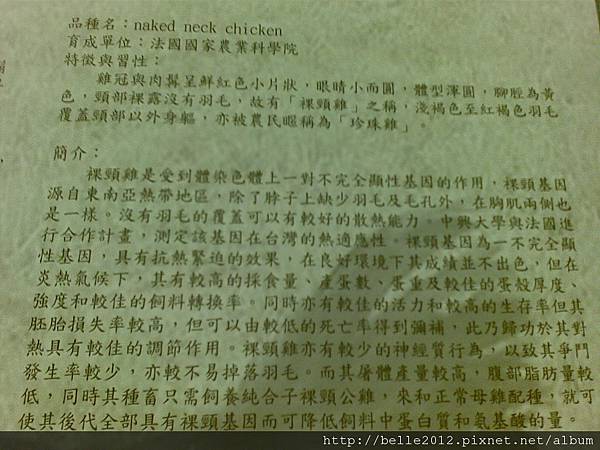 品種名：naked neck chicken
育成單位：法國國家農業科學院
特徵與習性：
雞冠與肉髯呈鮮紅色小片狀，眼睛小而圓，體型渾圓，腳脛為黃
色，頸部裸露沒有羽毛，故有「裸頸雞」之稱，淺褐色至紅褐色羽毛
覆蓋頸部以外身軀，亦被農民暱稱為「珍珠雞」。
簡介：
裸頸雞是受到體染色體上一對不完全顯性基因的作用，裸頸基因
源自東南亞熱帶地區，除了脖子上缺少羽毛及毛孔外，在胸肌兩側也
是一樣。沒有羽毛的覆蓋可以有較好的散熱能力。中興大學與法國進
行合作計畫，測定該基因在台灣的熱適應性。裸頸基因為一不完全顯
性基因，具有抗熱緊迫的效果，在良好環境下其成績並不出色，但在
炎熱氣候下，其有較高的採食量、產蛋數、蛋重及較佳的蛋殼厚度、
強度和較佳的飼料轉換率。同時亦有較佳的活力和較高的生存率但其
胚胎損失率較高，但可以由較低的死亡率得到彌補，此乃歸功於其對
熱具有較佳的調節作用。裸頸雞亦有較少的神經質行為，以致其爭鬥
發生率較少，亦較不易掉落羽毛。而其屠體產量較高，腹部脂肪量較
低，同時其種畜只需飼養純合子裸頸公雞，來和正常母雞配種，就可
使其後代全部具有裸頸基因而可降低飼料中蛋白質和氨基酸的量。
http://belle2012.pixnet.net/album